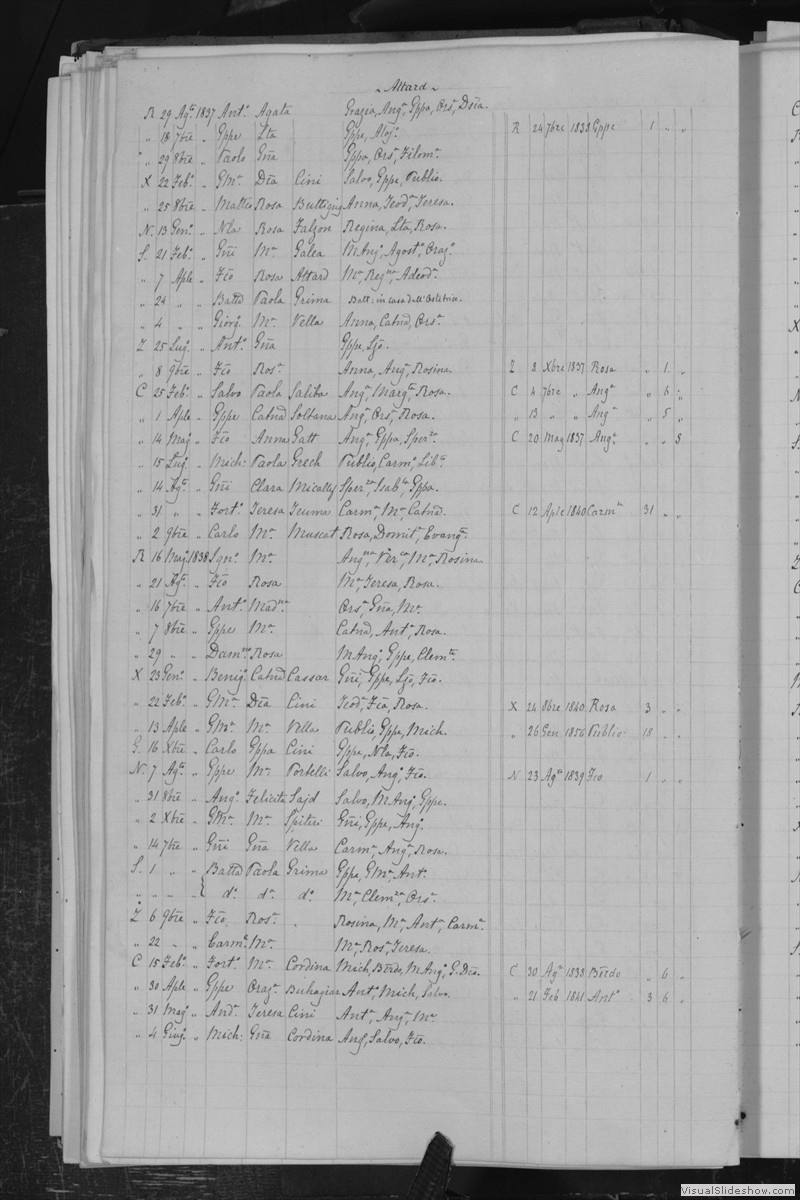 Altard
R 29 Agto 1837 Anto Agata Grazia, Anga, Gppa, Orsa, Dna.
„ 18 7bre „ Gppe Lta Gppe, Aloja.
„ 29 8bre „ Paolo Gña Gppa, Orsa, Filoma. R 24 7bre 1838 Gppe 1 „ „
X 22 Febo „ GMa Dña Cini Salvo, Gppe, Publio.
„ 25 8bre „ Matteo Rosa Buttigieg Anna, Teoda, Teresa.
N. 13 Geno „ Nla Rosa Falzon Regina, Lta, Rosa.
S. 21 Febo „ Gñi Ma Galea MAnga, Agosto, Orazo.
„ 7 Aple „ Fco Rosa Attard Ma, Regna, Adeoda.
„ 24 „ „ Batta Paola Grima Batt: in casa dell'Ostetrice.
„ 4 „ „ Giorgo Ma Vella Anna, Catna, Orsa.
Z 25 Lugo „ Anto Gña Gppe, Ljo.
„ 8 9bre „ Fco Rosa Anna, Anga, Rosina. Z 8 Xbre 1837 Rosa „ 1 „
C 25 Febo „ Salvo Paola Saliba Anga, Marga, Rosa. C 4 7bre „ Anga „ 6 „
„ 1 Aple „ Gppe Catna Soltana Anga, Orsa, Rosa. „ 13 „ „ Anga „ 5 „
„ 14 Mago „ Fco Anna Gatt Anga, Gppa, Spera. C 20 Mag 1837 Anga „ „ 8
„ 15 Lugo „ Mich: Paola Grech Publio, Carmo, Liba.
„ 14 Agto „ Gñi Clara Micallef Spera, Isabla, Gppa.
„ 31 „ „ Forto Teresa Zeuma Carma, Ma, Catna. C 12 Aple 1840 Carma 31 „ „
„ 2 9bre „ Carlo Ma Muscat Rosa, Domita, Evanga.
R 16 Mago 1838 Igno Ma Angna, Vera, Ma, Rosina.
„ 21 Agto „ Fco Rosa Ma, Teresa, Rosa.
„ 16 7bre „ Anto Madna Orsa, Gña, Ma.
„ 7 8bre „ Gppe Ma Catna, Anta, Rosa.
„ 29 „ „ Damno Rosa MAnga, Gppe, Clemte.
X 23 Geno „ Benigo Catna Cassar Gñi, Gppe, Ljo, Fco.
„ 22 Febo „ GMa Dña Cini Teoda, Fca, Rosa. X 24 8bre 1840 Rosa 3 „ „
„ 13 Aple „ GMa Ma Vella Publio, Gppe, Mich. „ 26 Gen 1856 Publio 18 „ „
G. 16 Xbre „ Carlo Gppa Cini Gppe, Nla, Fco.
N. 7 Agto „ Gppe Ma Portelli Salvo, Ango, Fco. N 23 Agto 1839 Fco 1 „ „
„ 31 8bre „ Ango Felicita Sajd Salvo, MAnga, Gppe.
„ 2 Xbre „ GMa Ma Spiteri Gñi, Gppe, Ango.
„ 14 7bre „ Gñi Gña Vella Carma, Anga, Rosa.
S. 1 „ „ Batta Paola Grima Gppe, GMa, Anto.
„ „ „ „ do do do Ma, Clemza, Orsa.
Z 6 9bre „ Fco Rosa „ Rosina, Ma, Anta, Carma.
„ 22 „ „ Carmo Ma Ma, Rosa, Teresa.
C 15 Febo „ Forto Ma Cordina Mich, Bñdo, MAngo, G. Dña. C 30 Agto 1838 Bñdo „ 6 „
„ 30 Aple „ Gppe Oraza Buhagiar Anto, Mich, Salvo. „ 21 Feb 1841 Anto 3 6 „
„ 31 Mago „ Anda Teresa Cini Anta, Anga, Ma.
„ 4 Giugo „ Mich: Gña Cordina Ango, Salvo, Fco.
VisualSlideshow.com